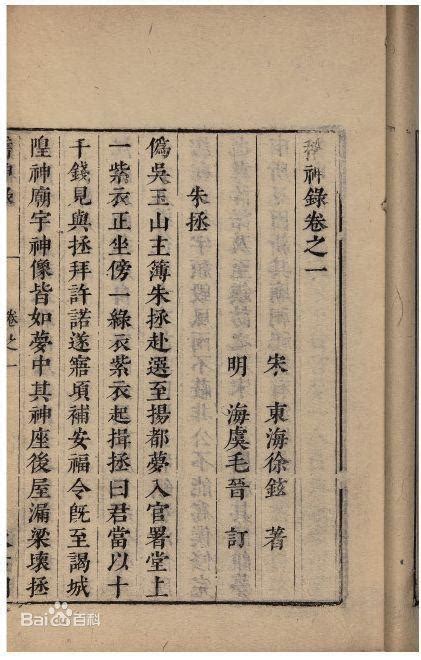 稽神錄卷之一
宋　東海徐鉉　著
明　海虞毛晉　訂
朱拯
僞吳玉山主簿朱拯赴選至揚都夢入官署堂上
一紫衣正坐傍一綠衣紫衣起揖拯曰君當以十
千錢見與拯拜許諾遂寤頃補安福令旣至謁城
隍神廟宇神像皆如夢中其神座後屋漏梁壞拯
卷之一
Bai du 百科